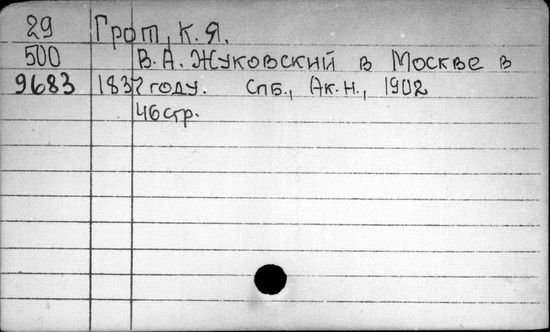 29 Грот, К. Я.
500 В. А. Жуковский в Москве в
9683 1837 году. Спб., Ак. Н., 1902
46 стр.